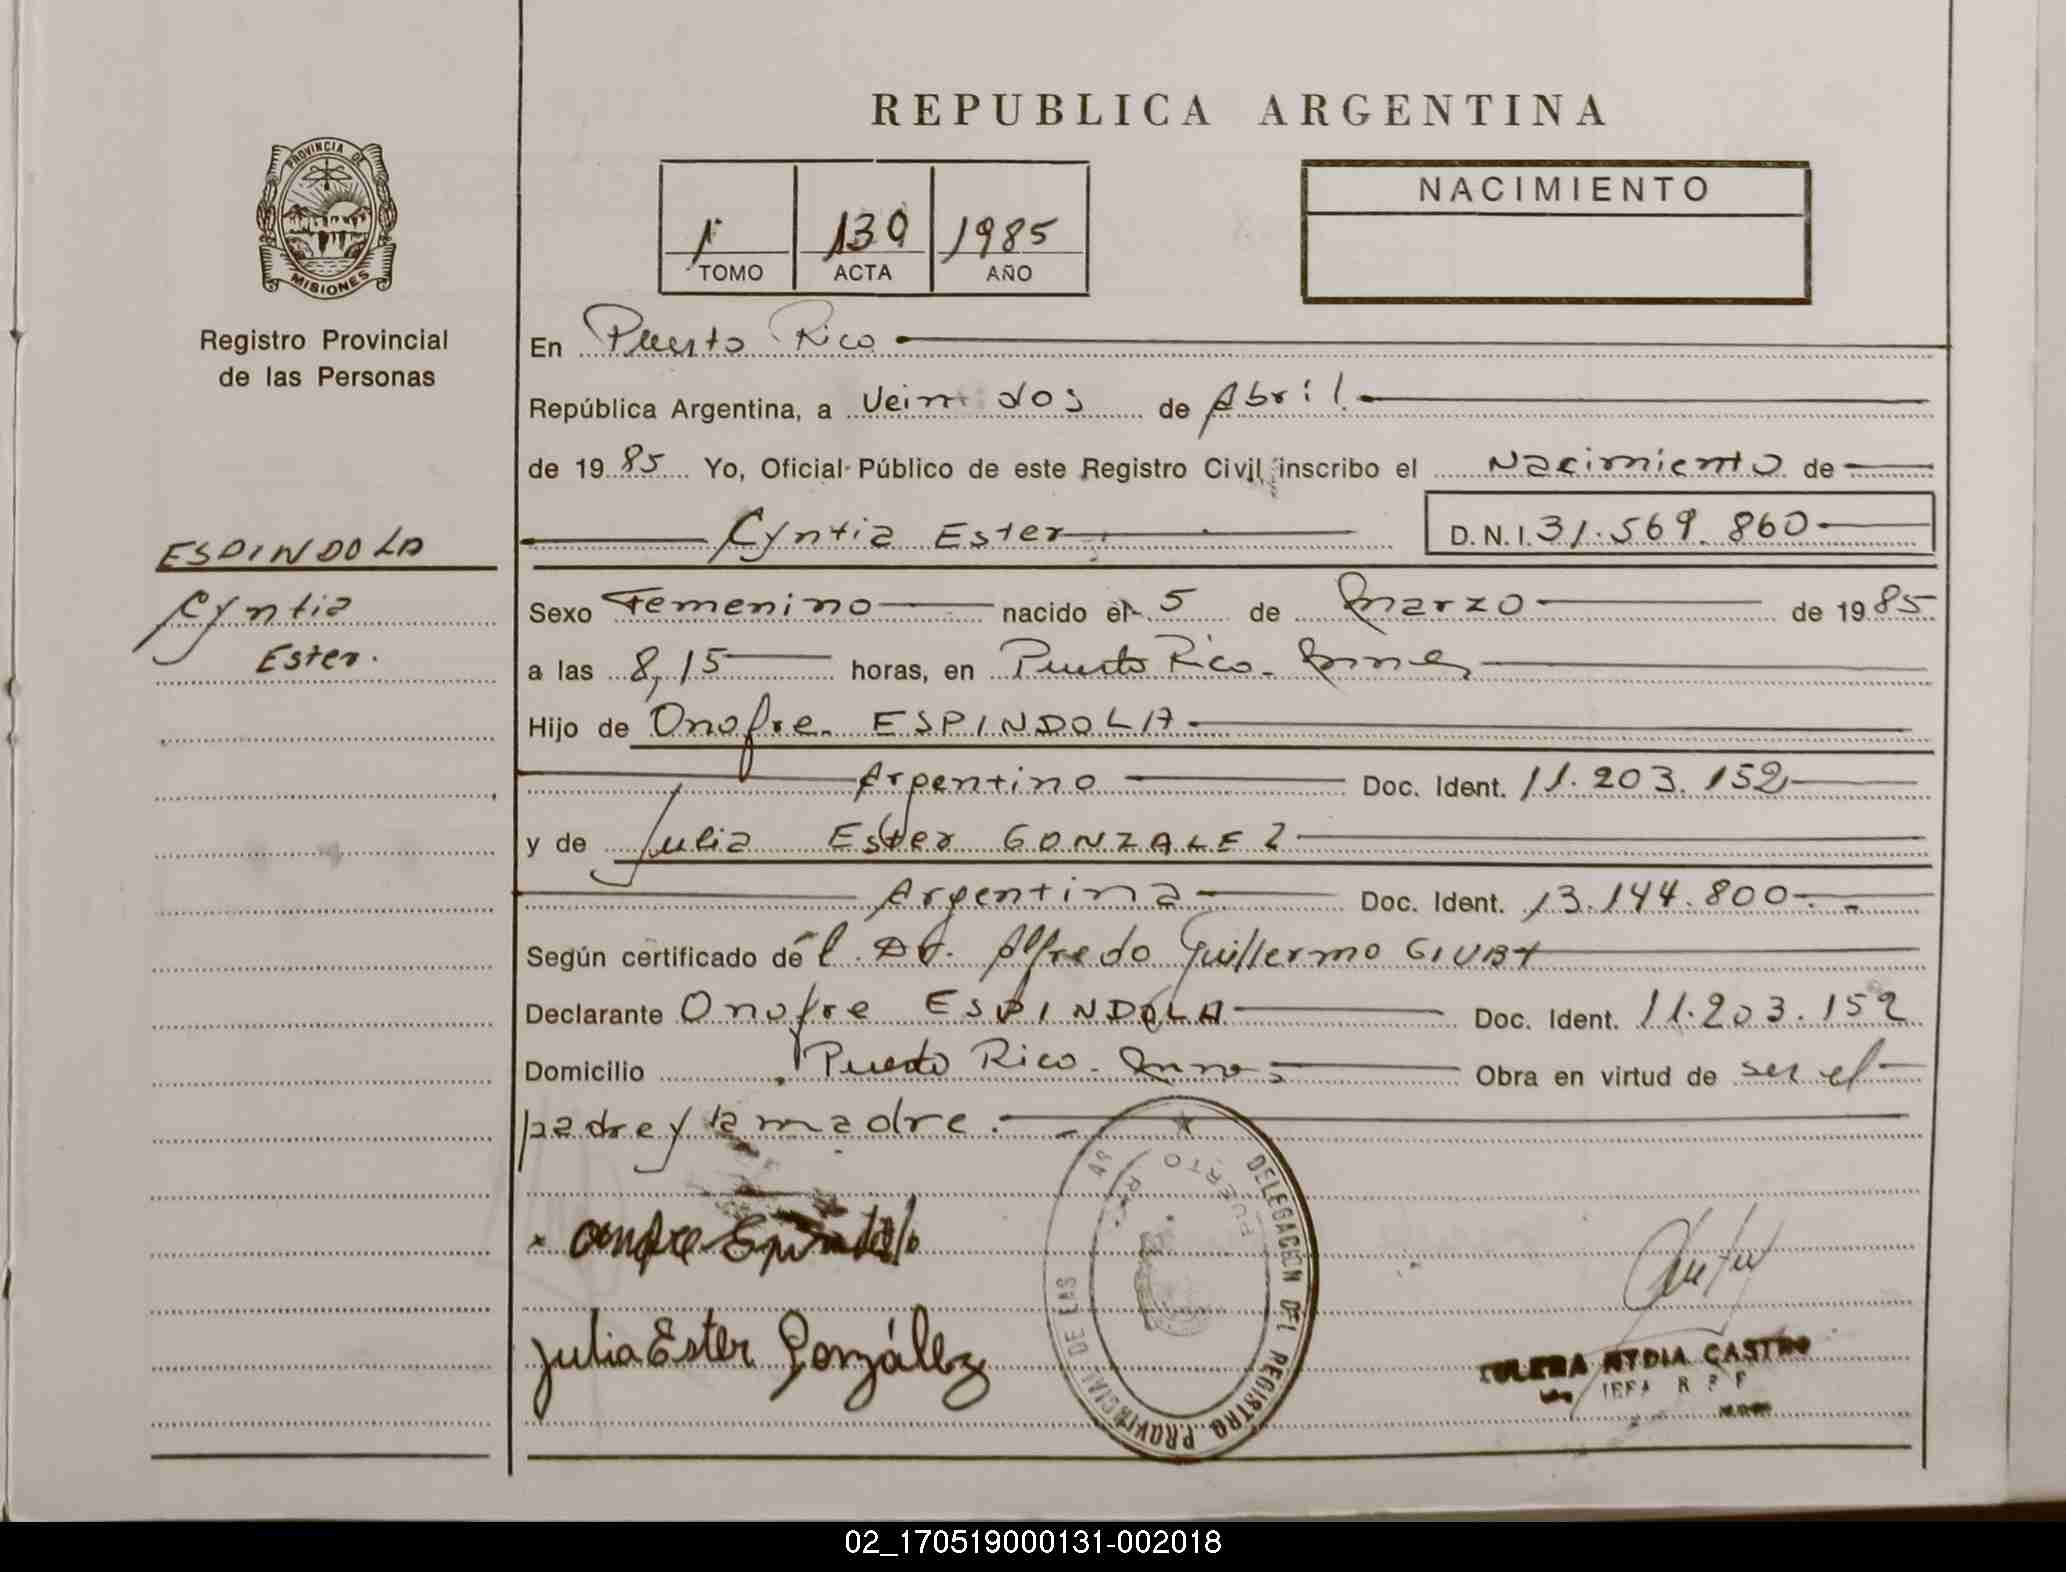 REPUBLICA ARGENTINA
PROVINCIA DE
MISIONES
Registro Provincial
de las Personas
1º 130 1985
TOMO ACTA AÑO
NACIMIENTO
En Puerto Rico
República Argentina, a Veintidos de Abril
de 1985 Yo, Oficial Público de este Registro Civil inscribo el Nacimiento de
Cyntia Ester D.N.I. 31.569.860
ESPINDOLA
Cyntia
Ester.
Sexo Femenino nacido el 5 de Marzo de 1985
a las 8,15 horas, en Puerto Rico-
Hijo de Onofre ESPINDOLA
Argentino Doc. Ident. 11.203.152
y de Julia Ester GONZALEZ
Argentina Doc. Ident. 13.144.800
Según certificado del Dr. Alfredo Guillermo
Declarante Onofre ESPINDOLA Doc. Ident. 11.203.152
Domicilio Puerto Rico- Obra en virtud de ser el
padre y la madre.
Julia Ester González
DELEGACION DEL REGISTRO PROVINCIAL DE LAS
PUERTO
NYDIA CASTRO
02_170519000131-002018